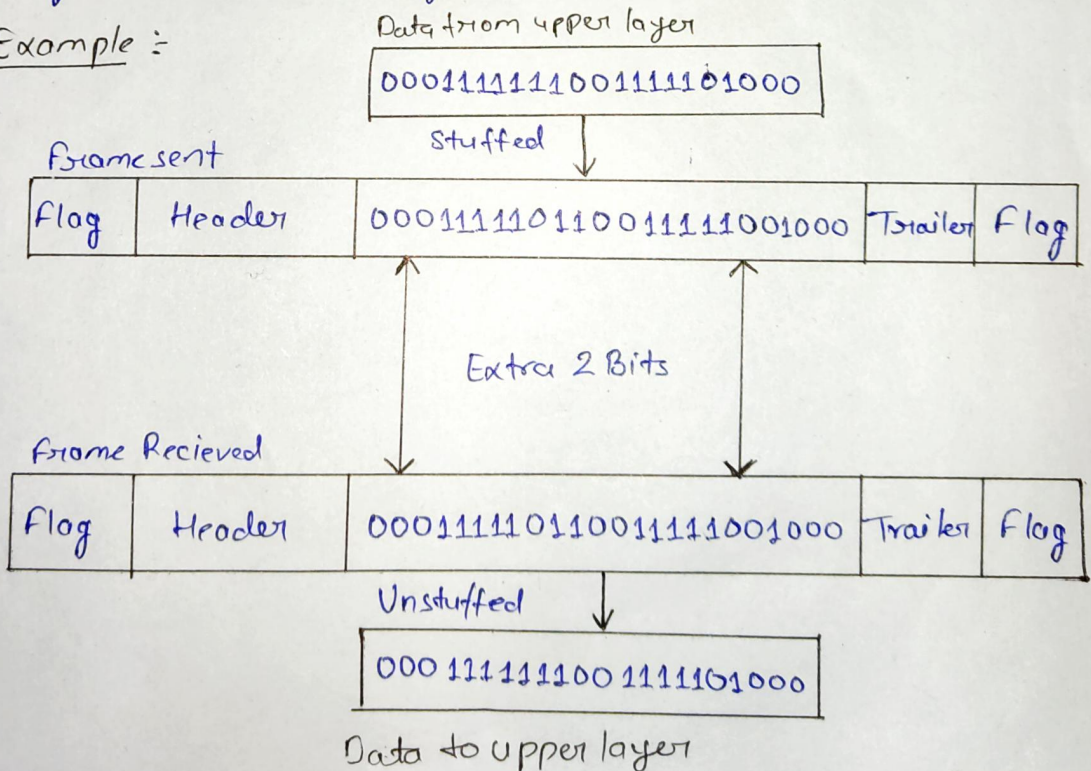 Example :-
Data from upper layer
0001111111001111101000
Stuffed
Frame sent
Flag Header 000111110110011111001000 Trailer Flag
Extra 2 Bits
Frame Recieved
Flag Header 000111110110011111001000 Trailer Flag
Unstuffed
000 111111100 1111101000
Data to upper layer